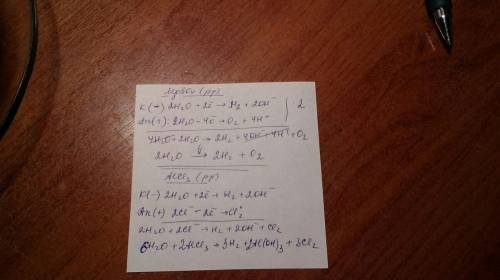 MgSO4 (р-р)
K(-) 2H2O + 2e̅ → H2 + 2OH⁻ | 2
An(+): 2H2O - 4e̅ → O2 + 4H⁺
4H2O + 2H2O → 2H2 + 4OH⁻ + 4H⁺ + O2
2H2O → 2H2 + O2
AlCl3 (р-р)
K(-) 2H2O + 2e̅ → H2 + 2OH⁻
An(+) 2Cl⁻ - 2e̅ → Cl2⁰
2H2O + 2Cl⁻ → H2 + 2OH⁻ + Cl2
6H2O + 2AlCl3 → 3H2 + 2Al(OH)3 + 3Cl2